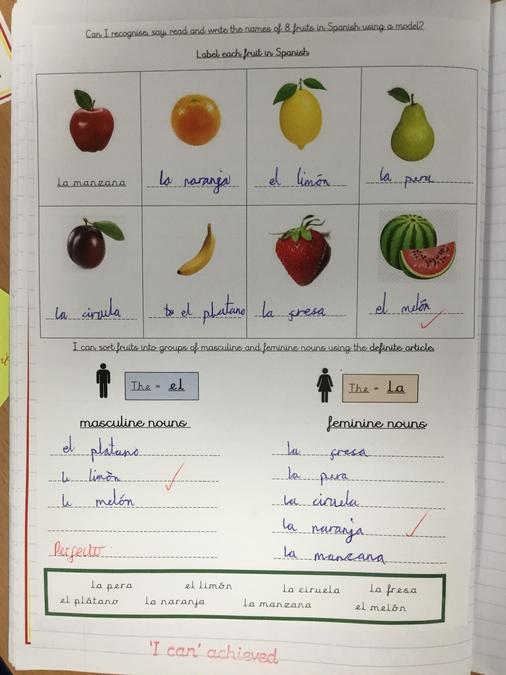 Can I recognise, say, read and write the names of 8 fruits in Spanish using a model?
Label each fruit in Spanish
la manzana la naranja el limón la pera
la cirula el platano la fresa el melón
I can sort fruits into groups of masculine and feminine nouns using the definite article.
The = el The = la
masculine nouns feminine nouns
el platano la fresa
limòn la pera
melón la ciruela
la naranja
Perfecto la manzana
la pera el limón la ciruela la fresa
el plátano la naranja la manzana el melón
'I can' achieved